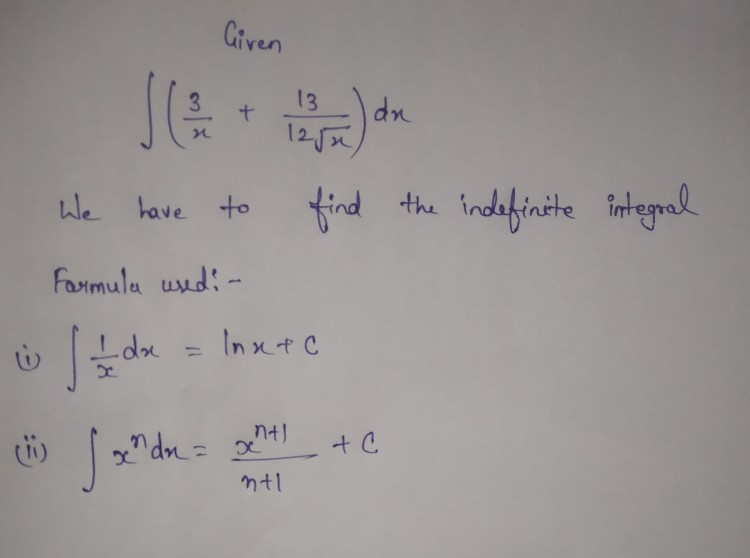 Given
∫(3/x + 13/12√x) dx
We have to find the indefinite integral
Formula used:-
(i) ∫ 1/x dx = ln x + C
(ii) ∫ x^n dx = x^(n+1)/(n+1) + C